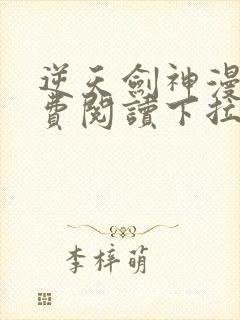 逆天劍神漫
費閱讀下拉
李梓萌